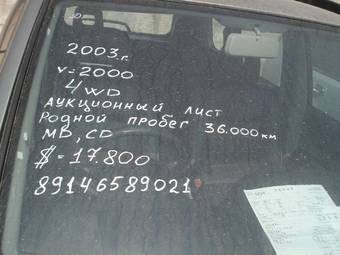 2003.г.
V=2000
4WD
АУКЦИОННЫЙ ЛИСТ
РОДНОЙ ПРОБЕГ 36.000 км
MD, CD
$=17.800
89146589021